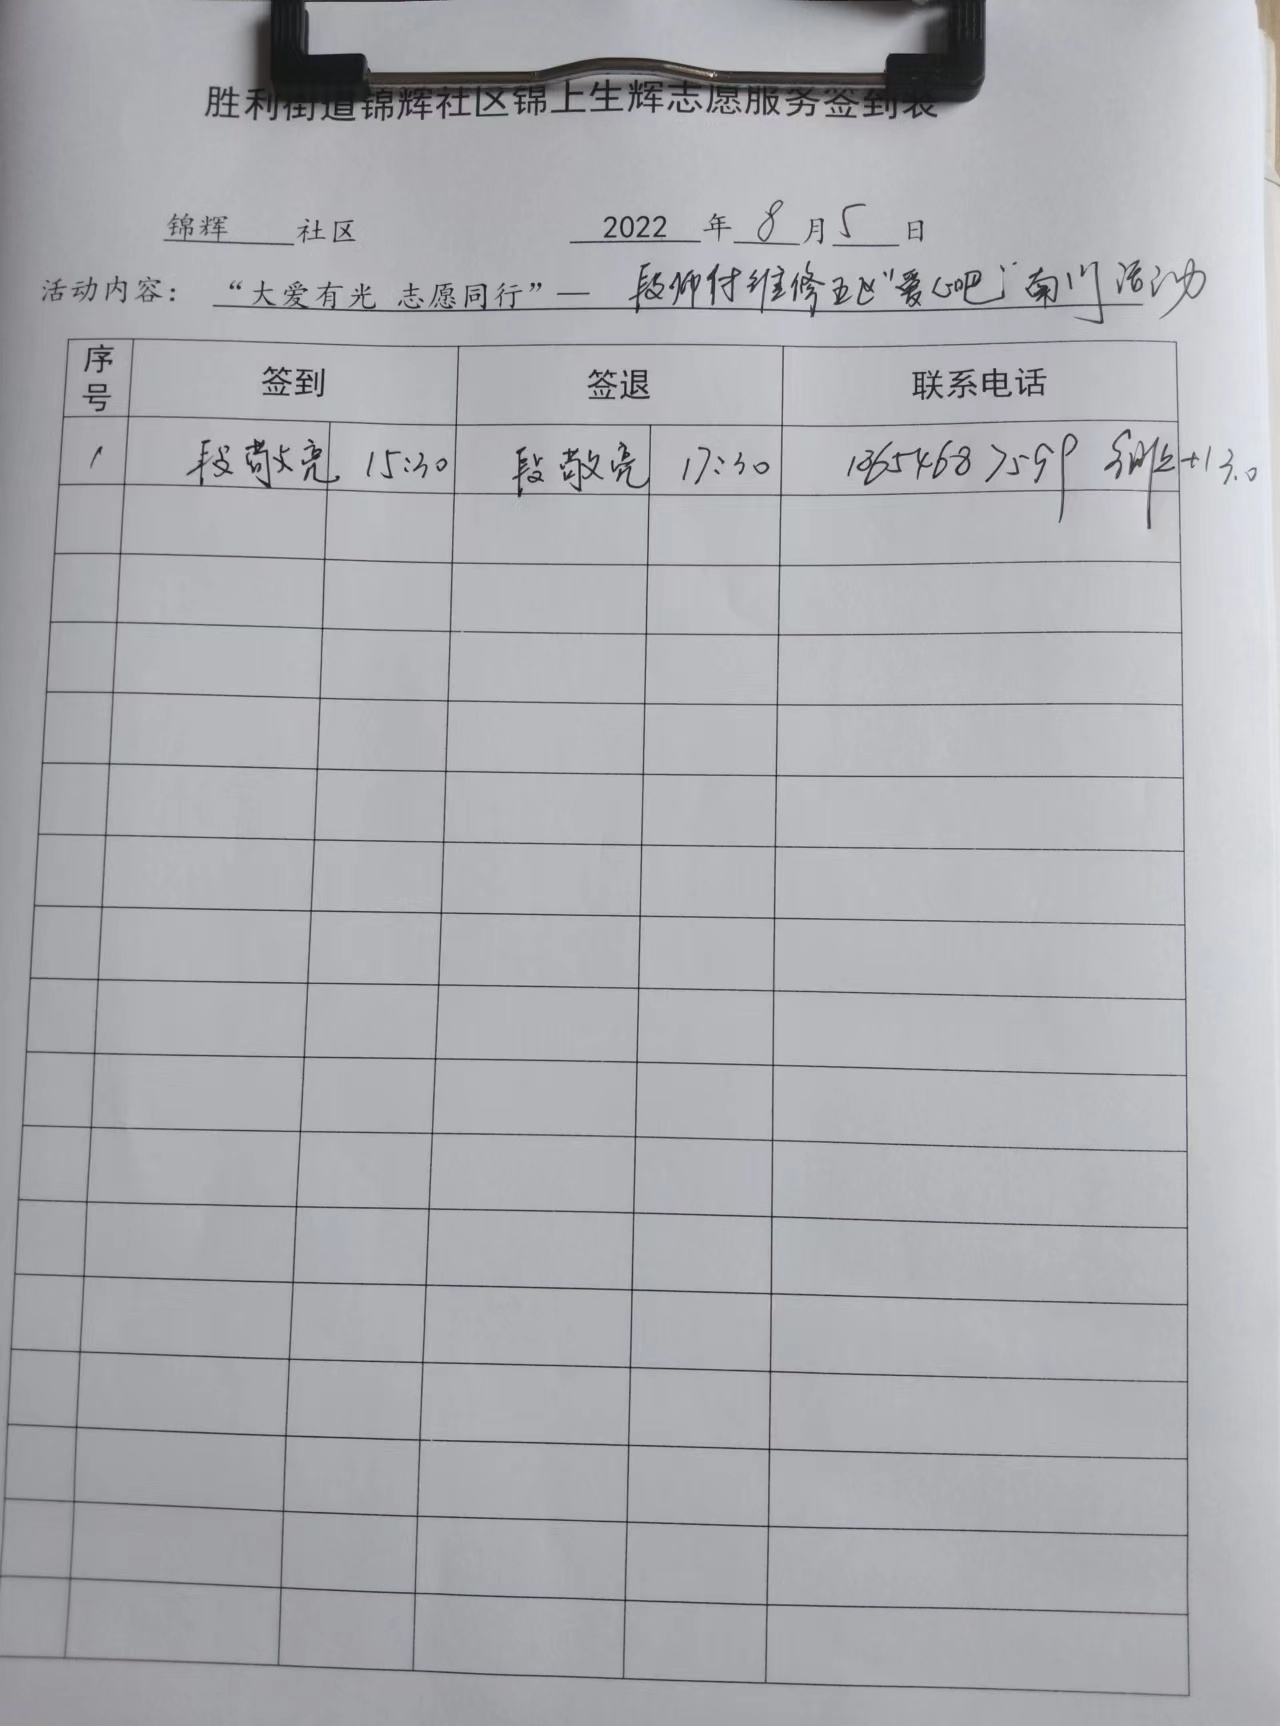 胜利街道锦辉社区锦上生辉志愿服务签到表
锦辉 社区 2022 年 8 月 5 日
活动内容： “大爱有光 志愿同行”— 段师付维修五区“爱心吧”南门活动
序号 签到 签退 联系电话
1 段敬亮 15:30 段敬亮 17:30 13654687599 +13.0